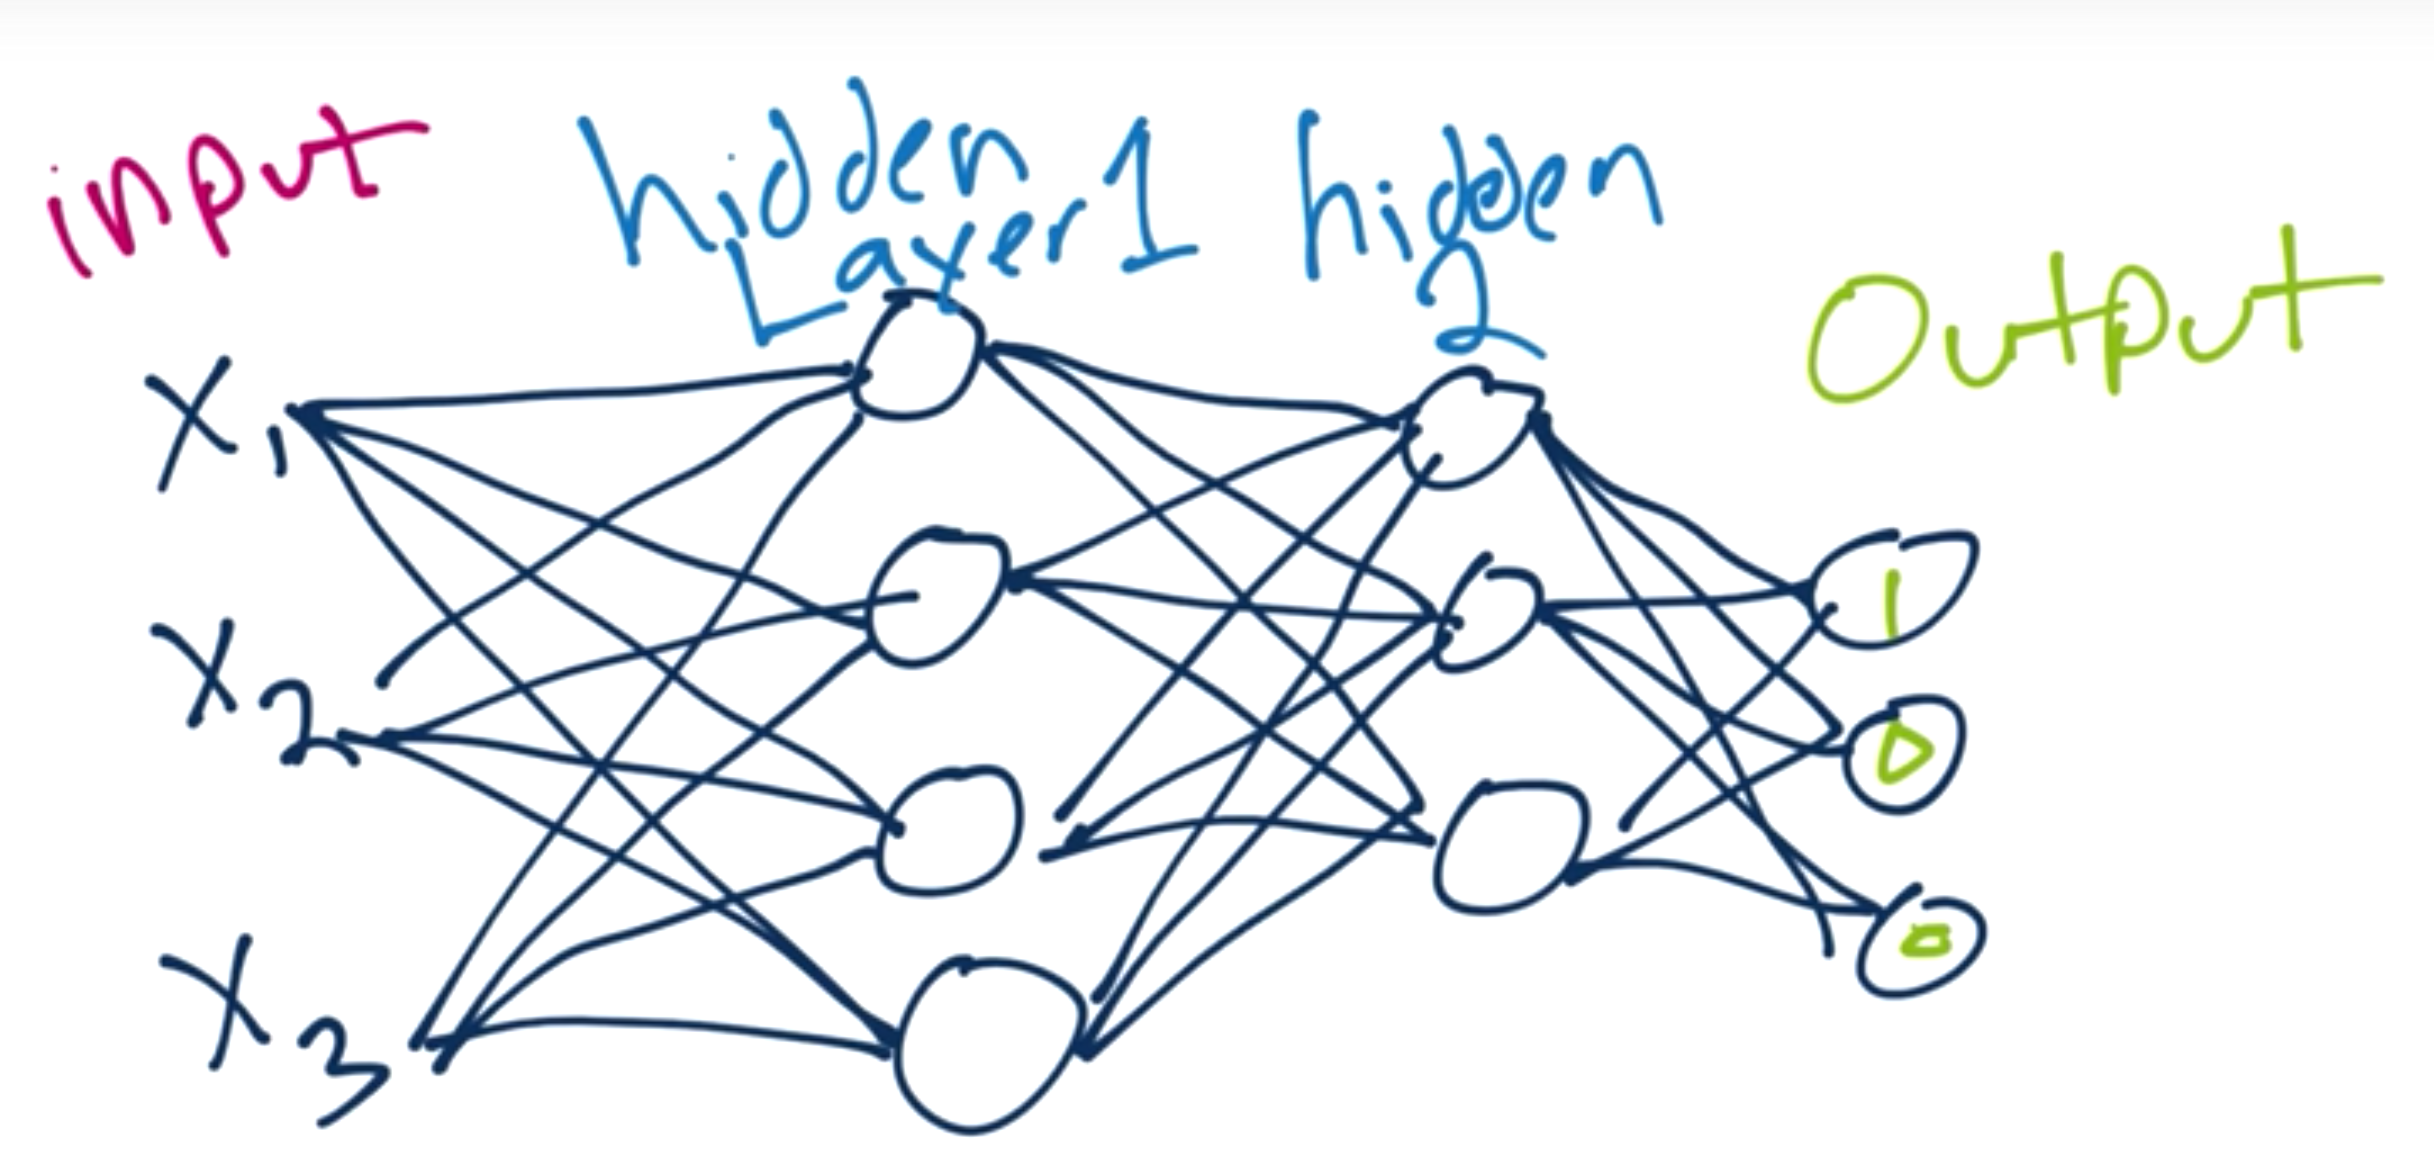 input
hidden
Layer 1
hidden
2
Output
X1
X2
X3
1
0
0